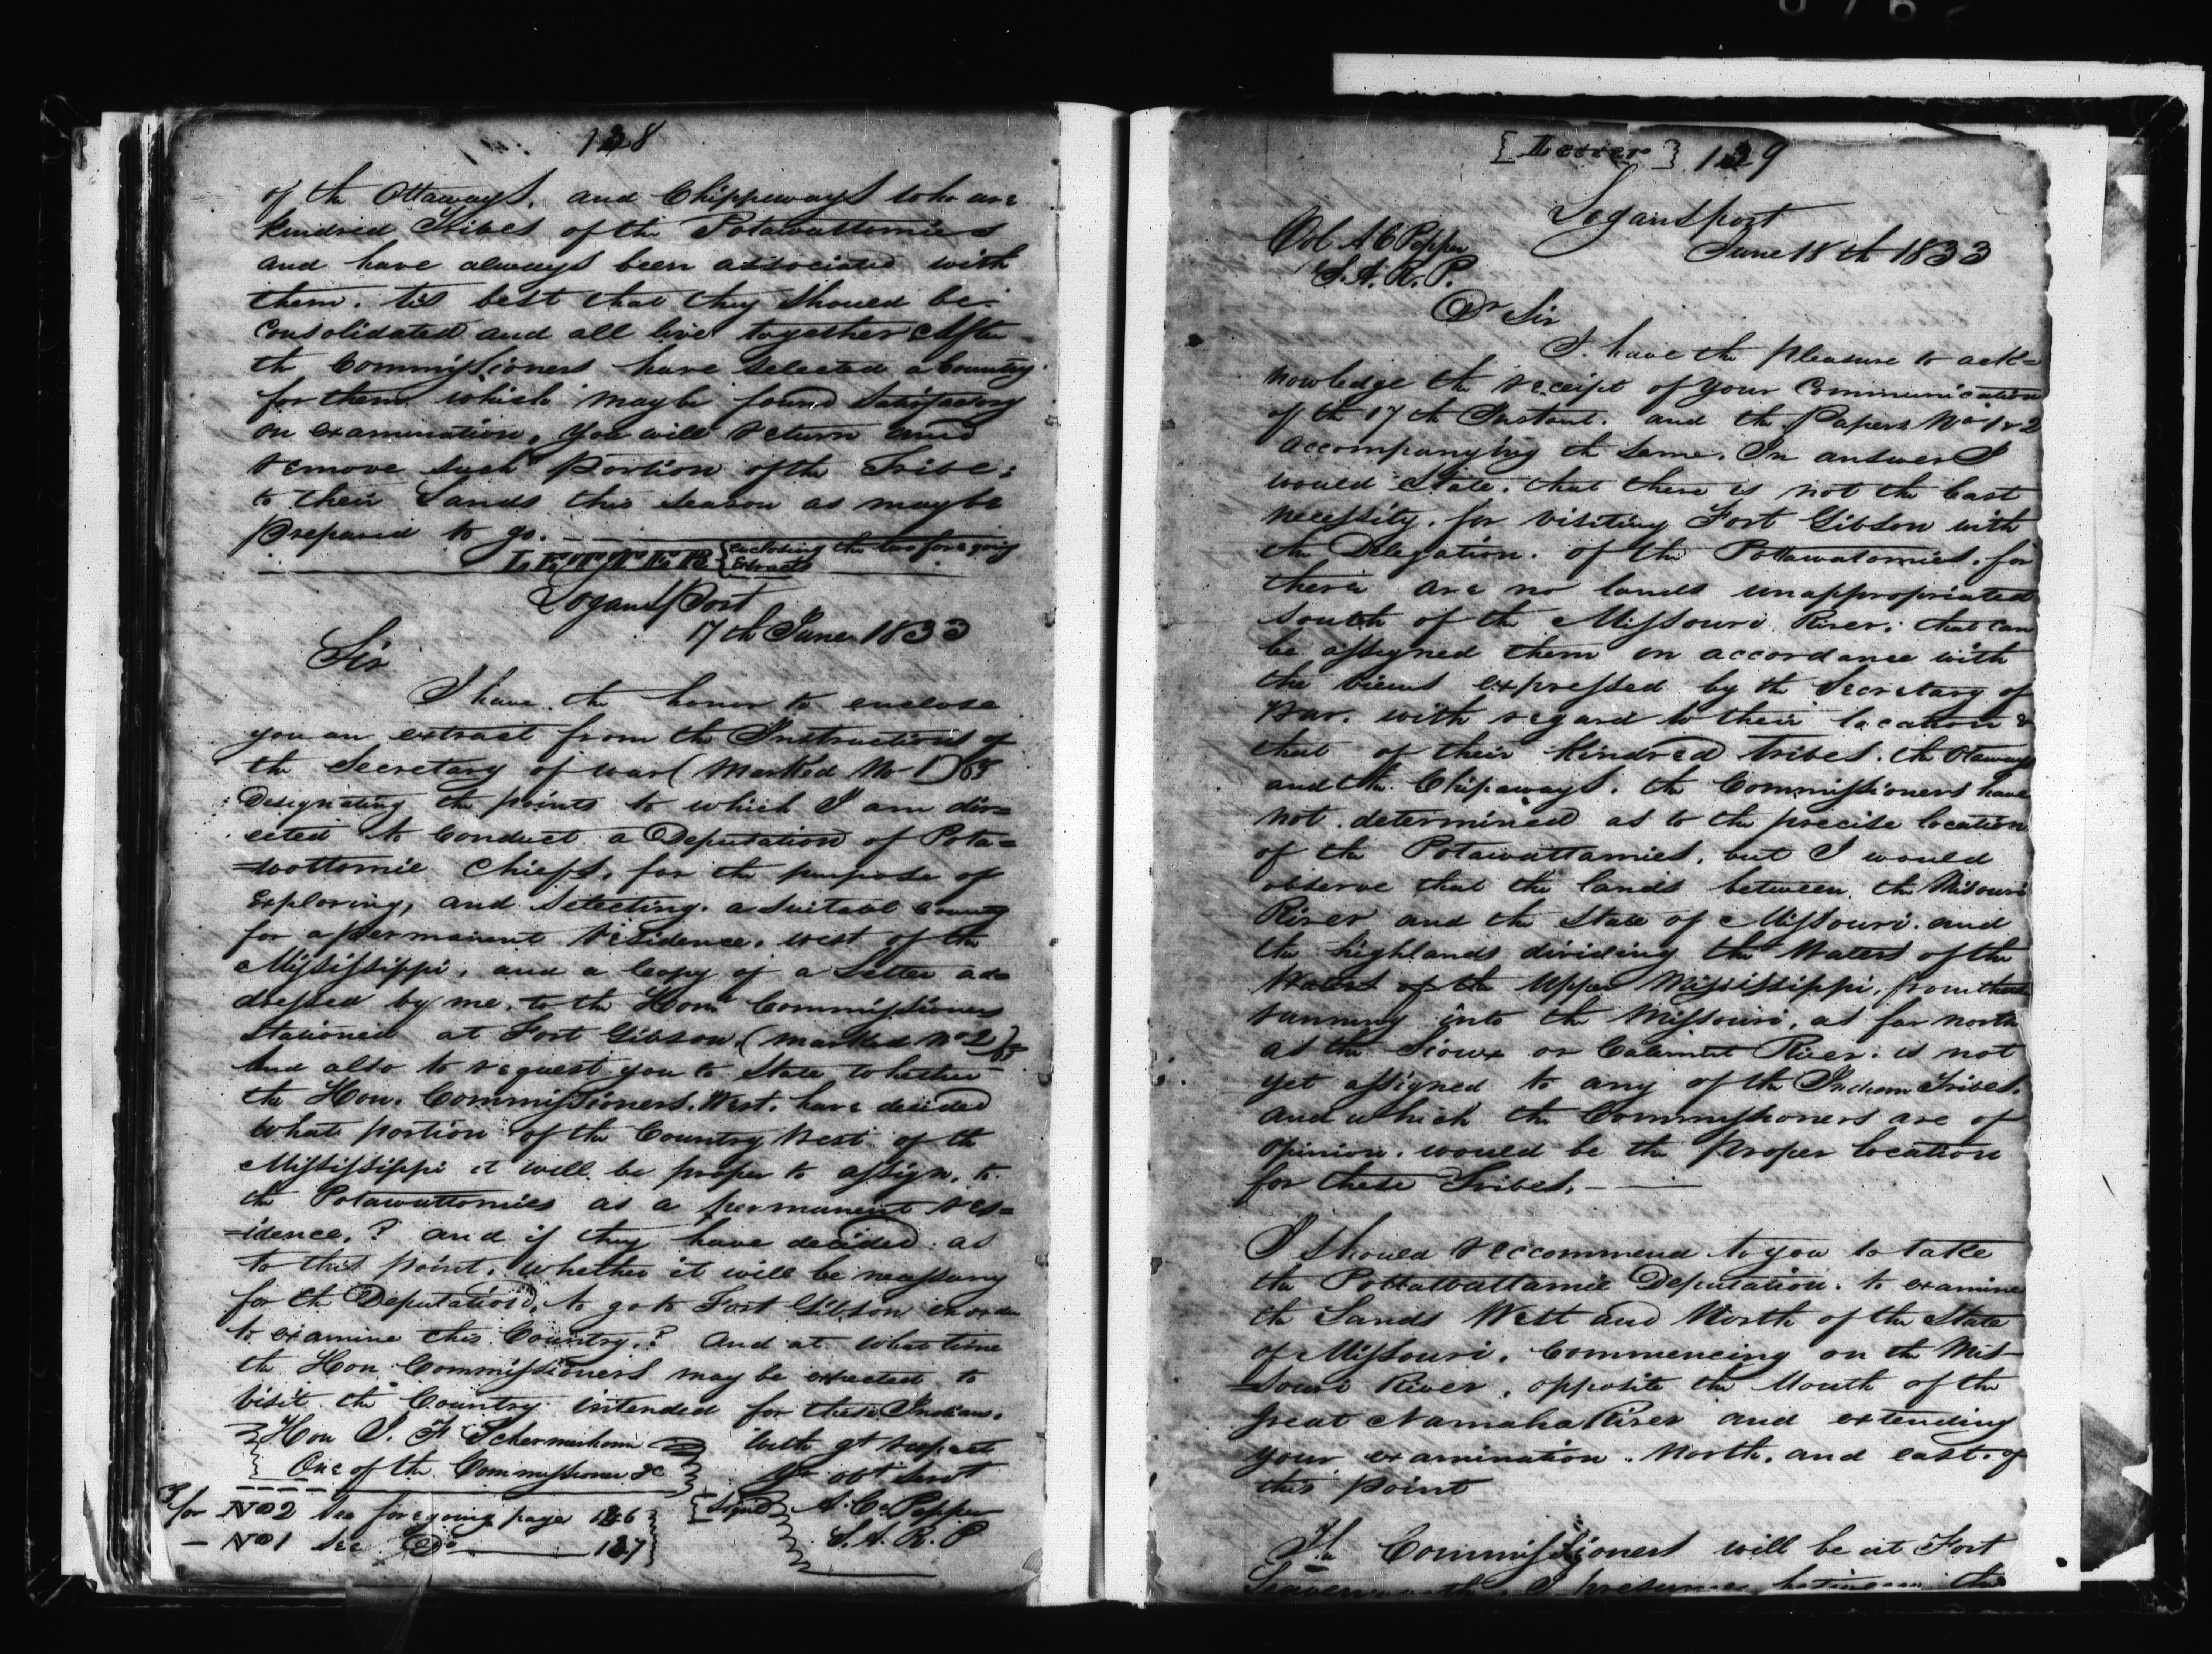 128
of the Ottaways, and Chippeways who are
kindred Tribes of the Potawattomies
and have always been associated with
them. tis best that they should be
Consolidated and all live together After
the Commissioners have selected a Country
for them which may be found Satisfactory
on examination, you will return and
remove such portion of the Tribe;
to their Lands this season as may be
prepared to go.
LETTER { enclosing the two foregoing
Extracts
Logansport
17th June 1833
Sir
I have the honor to enclose
you an extract from the Instructions of
the Secretary of war (marked No 1)
Designating the points to which I am dir=
ected to Conduct a Deputation of Pota=
=wottomie Chiefs, for the purpose of
Exploring, and Selecting a Suitabl Country
for a permanent residence, west of the
Mississippi, and a Copy of a Letter ad=
dressed by me, to the Hon. Commissioners
Stationed at Fort Gibson, (marked No 2)
And also to request you to State whether
the Hon. Commissioners West. have decided
what portion of the Country West of the
Mississippi it will be proper to assign, to
the Potawattomies as a permanent res=
=idence,? and if they have decided as
to this point, whether it will be necessary
for the Deputation, to go to Fort Gibson in order
to examine this Country,? And at what time
the Hon Commissioners may be expected to
visit the Country intended for these Indians.
Hon J. F Schermerhorn with gt respect
One of the Commissioner &c yr obt servt
for No 2 see foregoing page 126 {Signed} A. C. Pepper
— No 1 see Do 127 S. A. R. P
[Letter] 129
Logansport
June 18th 1833
Col A C Pepper
S. A. R. P.
Dr Sir
I have the pleasure to ack=
nowledge the receipt of your Communication
of the 17th Instant. and the Papers No 1 & 2
accompanying the same. In answer I
would State. that there is not the least
necessity, for visiting Fort Gibson with
the Delegation. of the Pottawatomies. for
there are no lands unappropriated
south of the Missouri River; that can
be assigned them in accordance with
the views expressed by the Secretary of
War. with regard to their location &
that of their kindred tribes. the Otaways
and the Chipaways. the Commissioners have
not determined as to the precise location
of the Potawattamies, but I would
observe that the lands between the Misouri
River and the State of Missouri. and
the highlands dividing the Waters of the
Waters of the Upper Mississippi, from those
running into the Missouri, as far north
as the Sioux or Calumet River. is not
yet assigned to any of the Indian Tribes.
and which the Commissioners are of
opinion. would be the Proper location
for these Tribes. — —
I should reccommend to you to take
the Pottawattamie Deputation. to examine
the Lands West and North of the State
of Missouri. Commencing on the Mis-
=souri River, opposite the Mouth of the
great Namaha River and extending
your examination. North, and east. of
this point
The Commissioners will be at Fort
Leavenworth, I presume between the